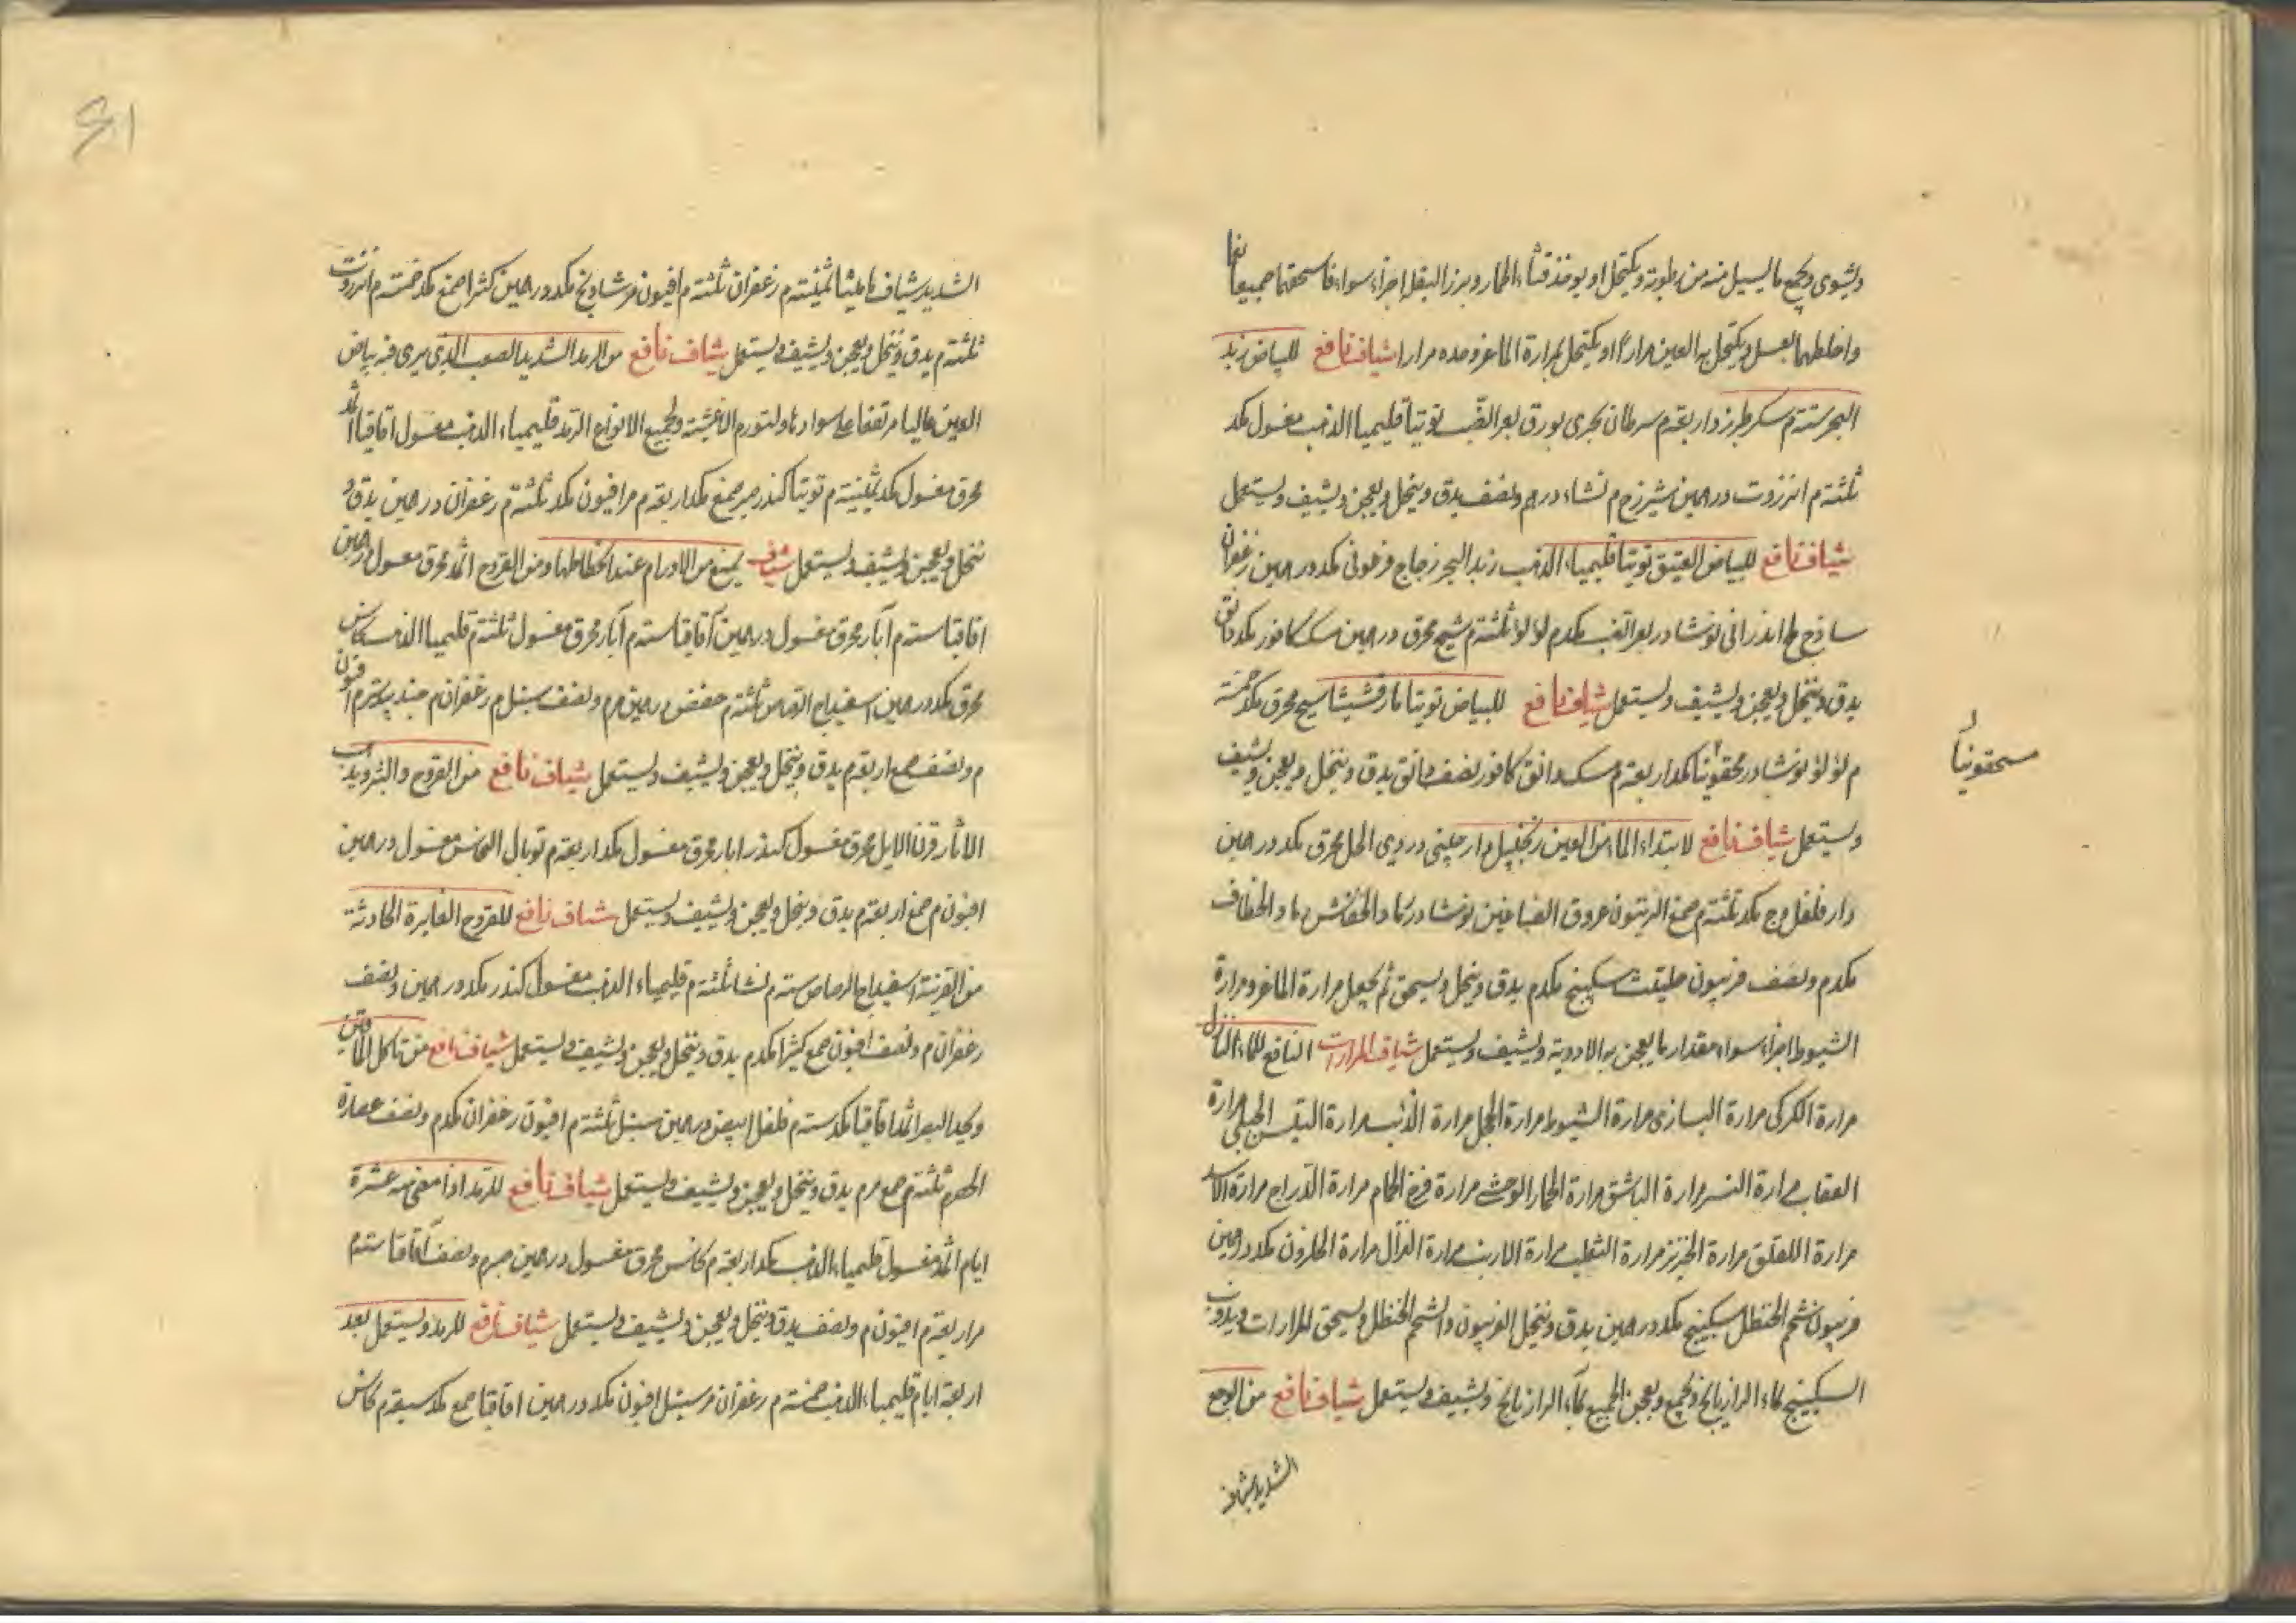 ويشوى ويجمع ما يسيل منه من رطوبة ويكتحل او يوخذ قثاء الحمار وبزر البقل اجزاء سواء فاسحقهما جميعا نعما
واخلطهما بعسل ويكتحل به العين مرارا او يكتحل بمرارة الماعز وحده مرارا شياف نافع للبياض زبد
البحر ستة م سكر طبرزد اربعة م سرطان بحرى بورق بعر الضب توتيا قليميا الذهب مغسول مكد
ثلثة م انزروت درهمين شيرزج م نشاء درهم ونصف يدق وينخل ويعجن ويشيف ويستعمل
شياف نافع للبياض العتيق توتيا قليمياء الذهب زبد البحر زجاج فرعونى مكد درهمين زعفران
ساذج ملح اندرانى نوشادر بعر الضب مكد م لؤلؤ ثلثة م شيح محرق درهمين مسك كافور مكد دانق
يدق وينخل ويعجن ويشيف ويستعمل شياف نافع للبياض توتيا مارقشيشا شيح محرق مكد خمسة
م لؤلؤ نوشادر محقونيا مكد اربعة م مسك دانق كافور نصف دانق يدق وينخل ويعجن ويشيف
مسحقونيا
ويستعمل شياف نافع لابتداء الماء من العين زنجبيل دارچينى دردى الخل محرق مكد درهمين
دار فلفل وج مكد ثلثة م صمغ الزيتون عروق الصباغين نوشادر رماد الخفاش رماد الخطاف
مكد م ونصف فربيون حلتيت سكبينج مكد م يدق وينخل ويسحق ثم يجعل مرارة الماعز ومرارة
الشبوط اجزاء سواء مقدار ما يعجن به الادوية ويشيف ويستعمل شياف المرارات النافع للماء النازل
مرارة الكركى مرارة البازى مرارة الشبوط مرارة الحجل مرارة الذئب مرارة التيس الجبلى مرارة
العقاب مرارة النسر مرارة الباشق مرارة الحمار الوحشى مرارة فرخ الحمام مرارة الدراج مرارة الاسد
مرارة اللقلق مرارة الخنزير مرارة الثعلب مرارة الارنب مرارة الغزال مرارة الحلزون مكد درهمين
فربيون شحم الحنظل سكبينج مكد درهمين يدق وينخل الفربيون والشحم الحنظل ويسحق المرارات ويذوب
السكبينج بماء الرازيانج ويجمع ويعجن الجميع بماء الرازيانج ويشيف ويستعمل شياف نافع من الوجع
الشديد شياف
الشديد شياف ماميثا ثمنية م زعفران ثلثة م افيون م شادنج مكد درهمين كثيرا صمغ مكد خمسة م انزروت
ثلثة م يدق وينخل ويعجن ويشيف ويستعمل شياف نافع من الرمد الشديد الصعب الذى يرى فيه بياض
العين عاليا مرتفعا على سوادها ولتورم الاغشية ولجميع الانواع الرمد قليمياء الذهب مغسول اقاقيا اثمد
محرق مغسول مكد ثمنية م توتيا كندر صبر صمغ مكد اربعة م مر افيون مكد ثلثة م زعفران درهمين يدق و
ينخل ويعجن ويشيف ويستعمل شياف يمنع من الاورام عند انحطاطها ومن القروح اثمد محرق مغسول درهمين
اقاقيا ستة م آبار محرق مغسول درهمين آقاقيا ستة م آبار محرق مغسول ثلثة م قليميا الذهب نحاس
محرق مكد درهمين اسفيداج الرصاص ثلثة م حضض درهمين مر م ونصف سنبل م زعفران م جندبيدستر م افيون
م ونصف صمغ اربعة م يدق وينخل ويعجن ويشيف ويستعمل شياف نافع من القروح والبثر ويذهب
الاثار قرن الايل محرق مغسول كندر ابار محرق مغسول مكد اربعة م توبال النحاس مغسول درهمين
افيون م صمغ اربعة م يدق وينخل ويعجن ويشيف ويستعمل شياف نافع للقروح الغايرة الحادثة
من القرنية اسفيداج الرصاص ستة م نشا ثلثة م قليمياء الذهب مغسول كندر مكد درهمين ونصف
زعفران م ونصف افيون صمغ كثيرا مكد م يدق وينخل ويعجن ويشيف ويستعمل شياف نافع من تاكل الماقين
ويحد البصر اثمد اقاقيا مكد ستة م فلفل ابيض درهمين سنبل ثلثة م افيون زعفران مكد م ونصف عصارة
الحصرم ثلثة م صمغ مر م يدق وينخل ويعجن ويشيف ويستعمل شياف نافع للرمد اذا مضى به عشرة
ايام اثمد مغسول قليمياء الذهب مكد اربعة م نحاس محرق مغسول درهمين صبر م ونصف آقاقيا ستة م
مر اربعة م افيون م ونصف يدق وينخل ويعجن ويشيف ويستعمل شياف نافع للرمد ويستعمل بعد
اربعة ايام قليمياء الذهب خمسة م زعفران م سنبل افيون مكد درهمين اقاقيا صمغ مكد سبعة م نحاس